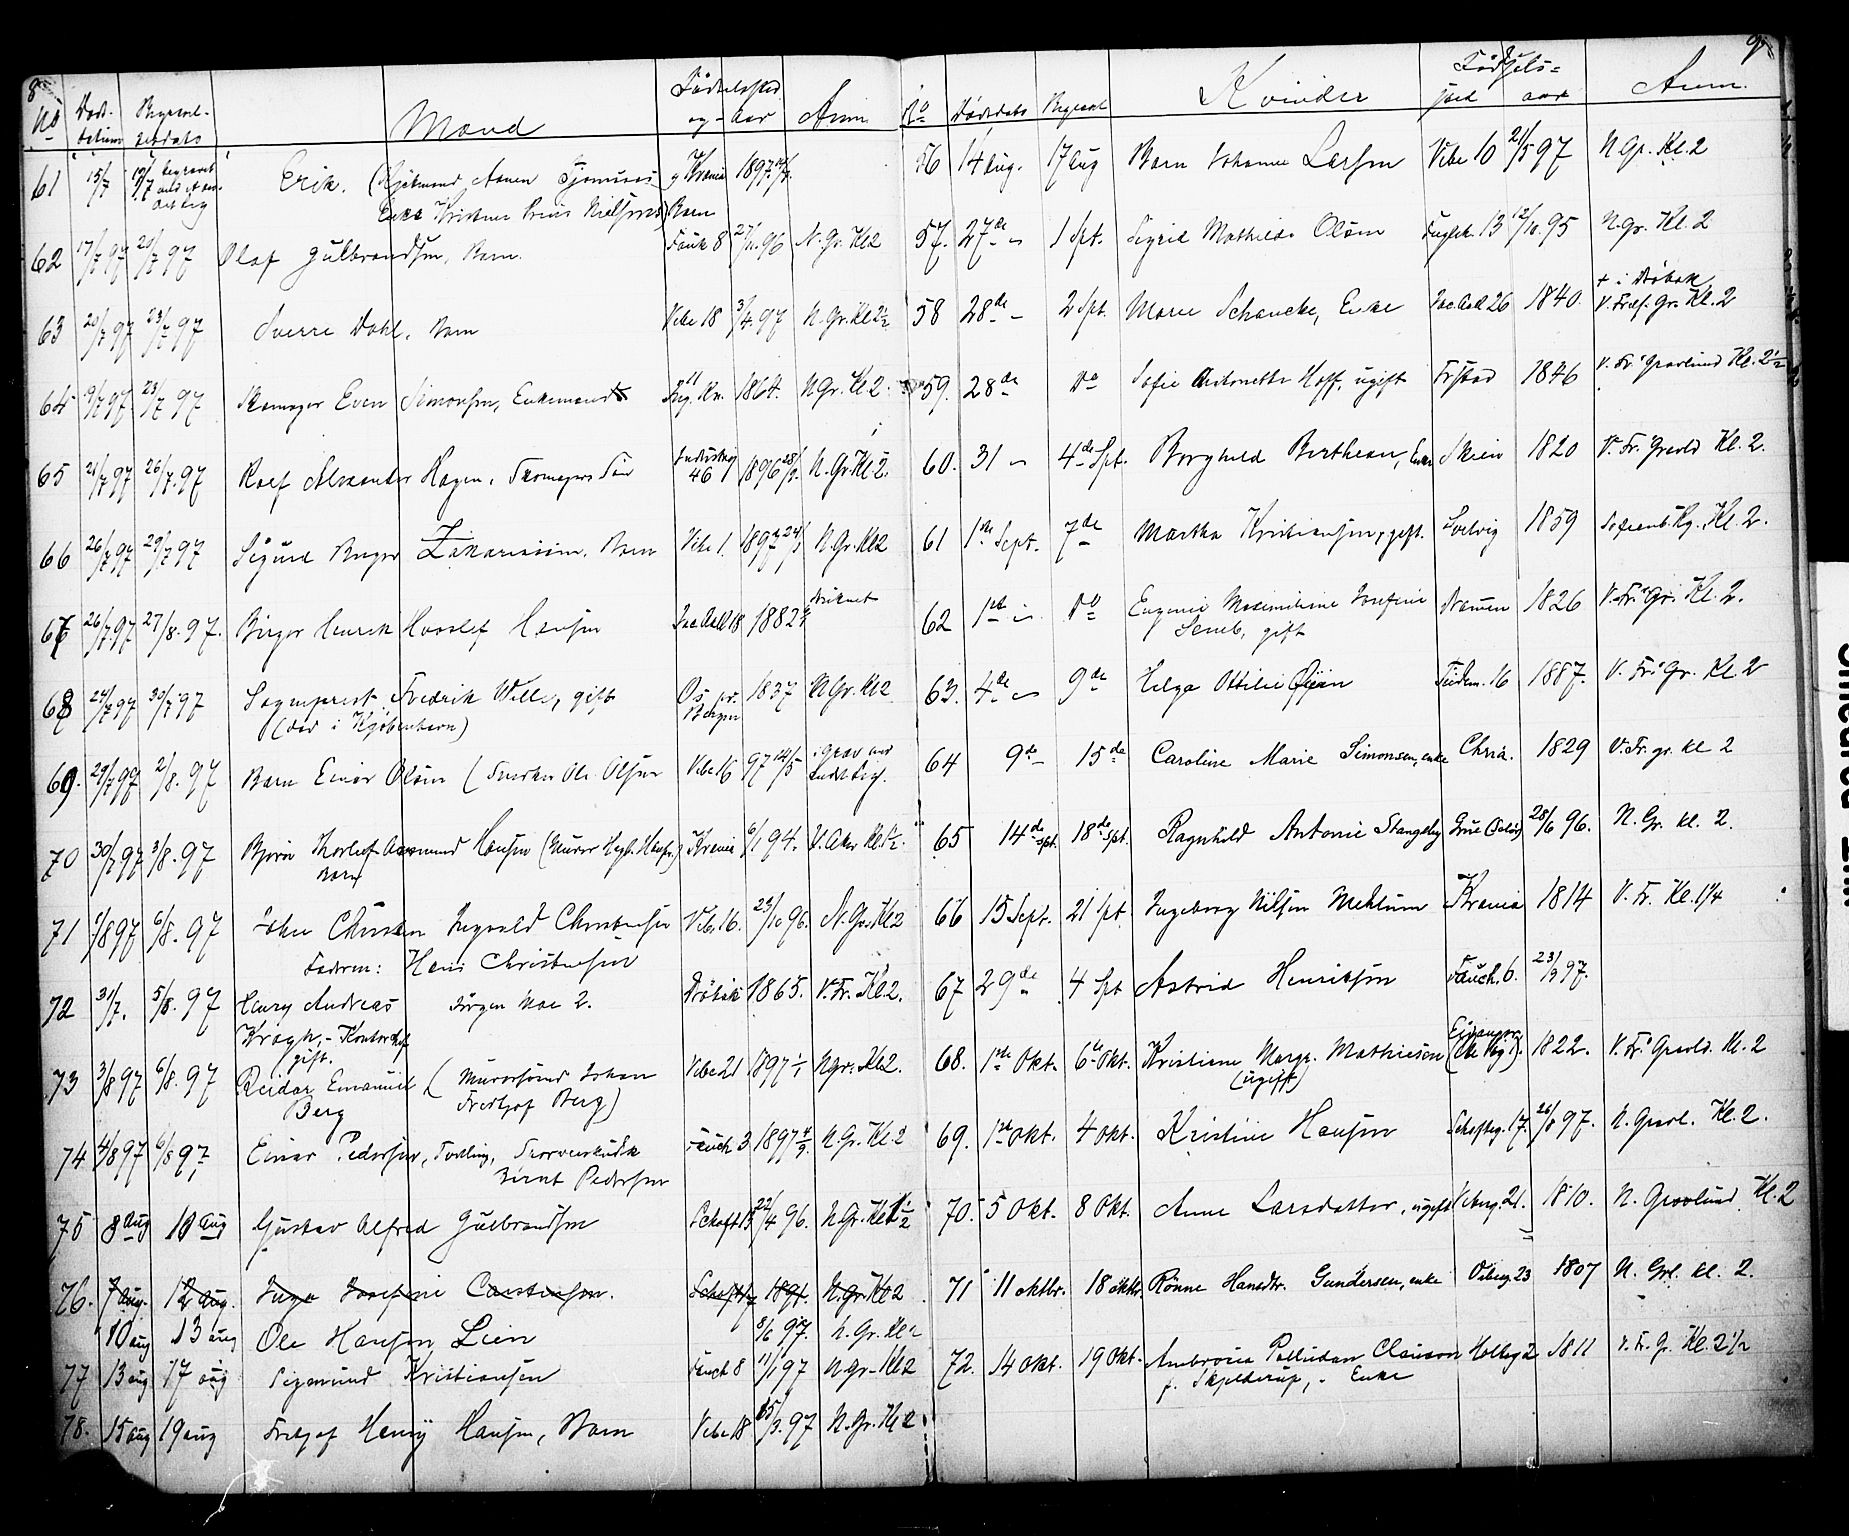 8
No Døds-datum Begravelsesdato Mænd Fødselssted og-Aar Anm.
61 15/7 19/7 begravet Erik. (Sjømand Kristiania 1897
Enke Kristine Nielsens) Barn
62 17/7 97 20/7 97 Olaf Gulbrandsen, Barn. Fauch 8 27/11.96 N. Gr. Kl 2
63 20/7 97 23/7 97 Sverre Dahl, Barn Vibe 18 3/4.97 N. Gr. Kl 2½
64 19/7 97 23/7 97 Skomager Even Simonsen, Enkemand 1864. N Gr. Kl 2.
65 21/7 97 26/7.97 Rolf Alexander Hagen, Skomagers Søn Industrig 46 1896 28/9. N. Gr. Kl 2.
66 26/7 97 29/7.97 Sigurd Birger Zakariassen, Barn Vibe 1. 1897 24/3 N. Gr. Kl 2
67 26/7.97 27/8.97. Birger Henrik Hansen Jac Aall 18 1882 druknet
68 24/7 97 30/7 97 Sogneprest Fredrik Wille, gift Os pr. Bergen 1837 N Gr. Kl 2
(død i Kjøbenhavn)
69. 29/7 97 2/8.97 Barn Einar Olsen (Snedker Ole Olsen Vibe 16 97 12/5 i Grav med Andet Lig.
70 30/7 97 3/8.97 Bjørn Thorleif Aasmund Hansen (Murer Hansen) Krania 6/1 94. V. Aker Kl. 1½.
Barn
71 1/8 97 6/8.97 John Christen Ingvald Christensen Vibe 16. 23/10 96. N. Gr. Kl 2
Faderen: Hans Christensen
72 31/7. 5/8.97 Henry Andreas Jørgen Moe 2. Drøbak 1865. V. Fr. Kl. 2.
Krogh,- Kontorchef
gift.
73 3/8 97 6/8.97 Reidar Emanuel (Murersvend Johan Vibe 21 1897 1/1 N gr. Kl 2.
Berg Fredtjof Berg)
74 4/8 97 6/8 97 Einar Pedersen, Tvilling, Fauch 3 1897 N. Gr. Kl. 2
Bernt Pedersen
75 8 Aug 10 Aug Gustav Alfred Gulbrandsen Schaft 15 22/4 96. N. Gr. Kl 1½
76. 7 Aug. 12 Aug. Inga Josefine Carstensen. Schaft 17 1891. N. Gr. Kl 2
10 aug 13 aug Ole Hansen Lien 8/6 97. N. Gr. Kl 2
77 13 aug 17 aug Sigmund Kristiansen Fauch 8 11/1 97 N gr. Kl 2
78. 15 aug 19 aug Fritjof Henry Hansen, Barn Vibe 18 15/3.97 N. Gr. Kl 2
9
No Dødsdato Begravet Kvinder Fødsels-sted aar Anm.
56 14 Aug. 17 Aug Barn Johanne Larsen Vibe 10 21/5 97 N Gr. Kl. 2
57. 27de " 1 Spt. Sigrid Mathilde Olsen Fuglek. 13 12/10.95 N. gr. Kl. 2
58 28de - 2 Spt. Marie Schancke, Enke Jac Aall 26 1840. + i Drøbak
V. Frels. Gr. Kl. 2
59. 28de Do Sofie Antonette Hoff, ugift Frstad 1846 V. Fr. Gravlund Kl. 2½
60. 31 " 4de Spt. Borghild Berthean, Enke Skien 1820 V. Fr. Gravld Kl. 2.
61 1ste Sept. 7de Martha Kristiansen, gift. Svelvig 1859 Sofienb. Kl. 2.
62 1st " Do Eugenie Maximiliane Josefine Dramen 1826 V. Fr. Gr. Kl. 2.
gift
63. 4de " 9de Helga Ottilie Øijen Tidem. 16 1887. V. Fr. Gr. Kl. 2
64 9de - 15de Caroline Marie Simonsen, enke Chria. 1829 V. Fr. gr. kl 2
65 14de spt. 18de Spt. Ragnhild Antonie Stangeby Grue Oslo 28/6 96. N. Gr. kl. 2.
66 15 Sept. 21 Spt. Ingeborg Nilsen Mehlum Krania 1814 V. Fr. Kl. 1¼
67 29de 4 Spt Astrid Henriksen Fauch. 6. 23/9 97.
68. 1ste Okt. 6te Okt. Kristiane Margr. Mathiesen 1822. V. Fr. Gravld. Kl. 2
(ugift)
69. 1ste Okt. 4 Okt. Kristine Hansen Schaftg. 17. 26/8 97. N. Gravl. Kl. 2.
70. 5 Okt. 8 Okt. Anne Larsdatter, ugift Vibeg. 21. 1810. N. Gravlund Kl. 2
71 11 oktbr. 18 oktbr. Rønne Hansdtr. Gundersen, enke Vibeg 23 1807 N. Grl. kl. 2.
72. 14 Okt. 19 Okt. Ambrosia Palludan Clauson Holbeg 2 1811 V. Fr. G. Kl. 2½
f. Skjelderup,- Enke